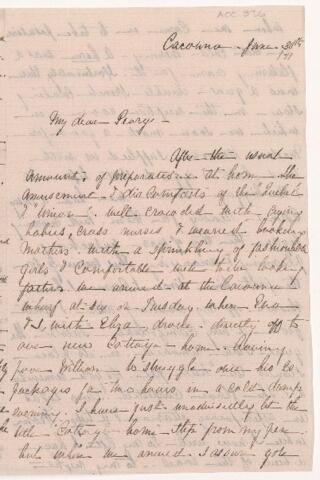 ACC 526
Cacouna - June 30th
/71
My dear Georgy -
After the usual
amount of preparations at home the
amusement & discomforts of the "Quebec"
& "Union" well crowded with crying
babies, cross nurses & wearied looking
mothers with a sprinkling of fashionable
girls & comfortable well to do looking
fathers we arrived at the Cacouna
wharf at six on Tuesday when Eva
& I, with Eliza, drove directly off to
our new Cottage home - leaving
poor William to struggle over his 60
packages for two hours in a cold damp
morning. I have just unadvisedly let the
title Cottage home slip from my pen
but when we arrived I assure you